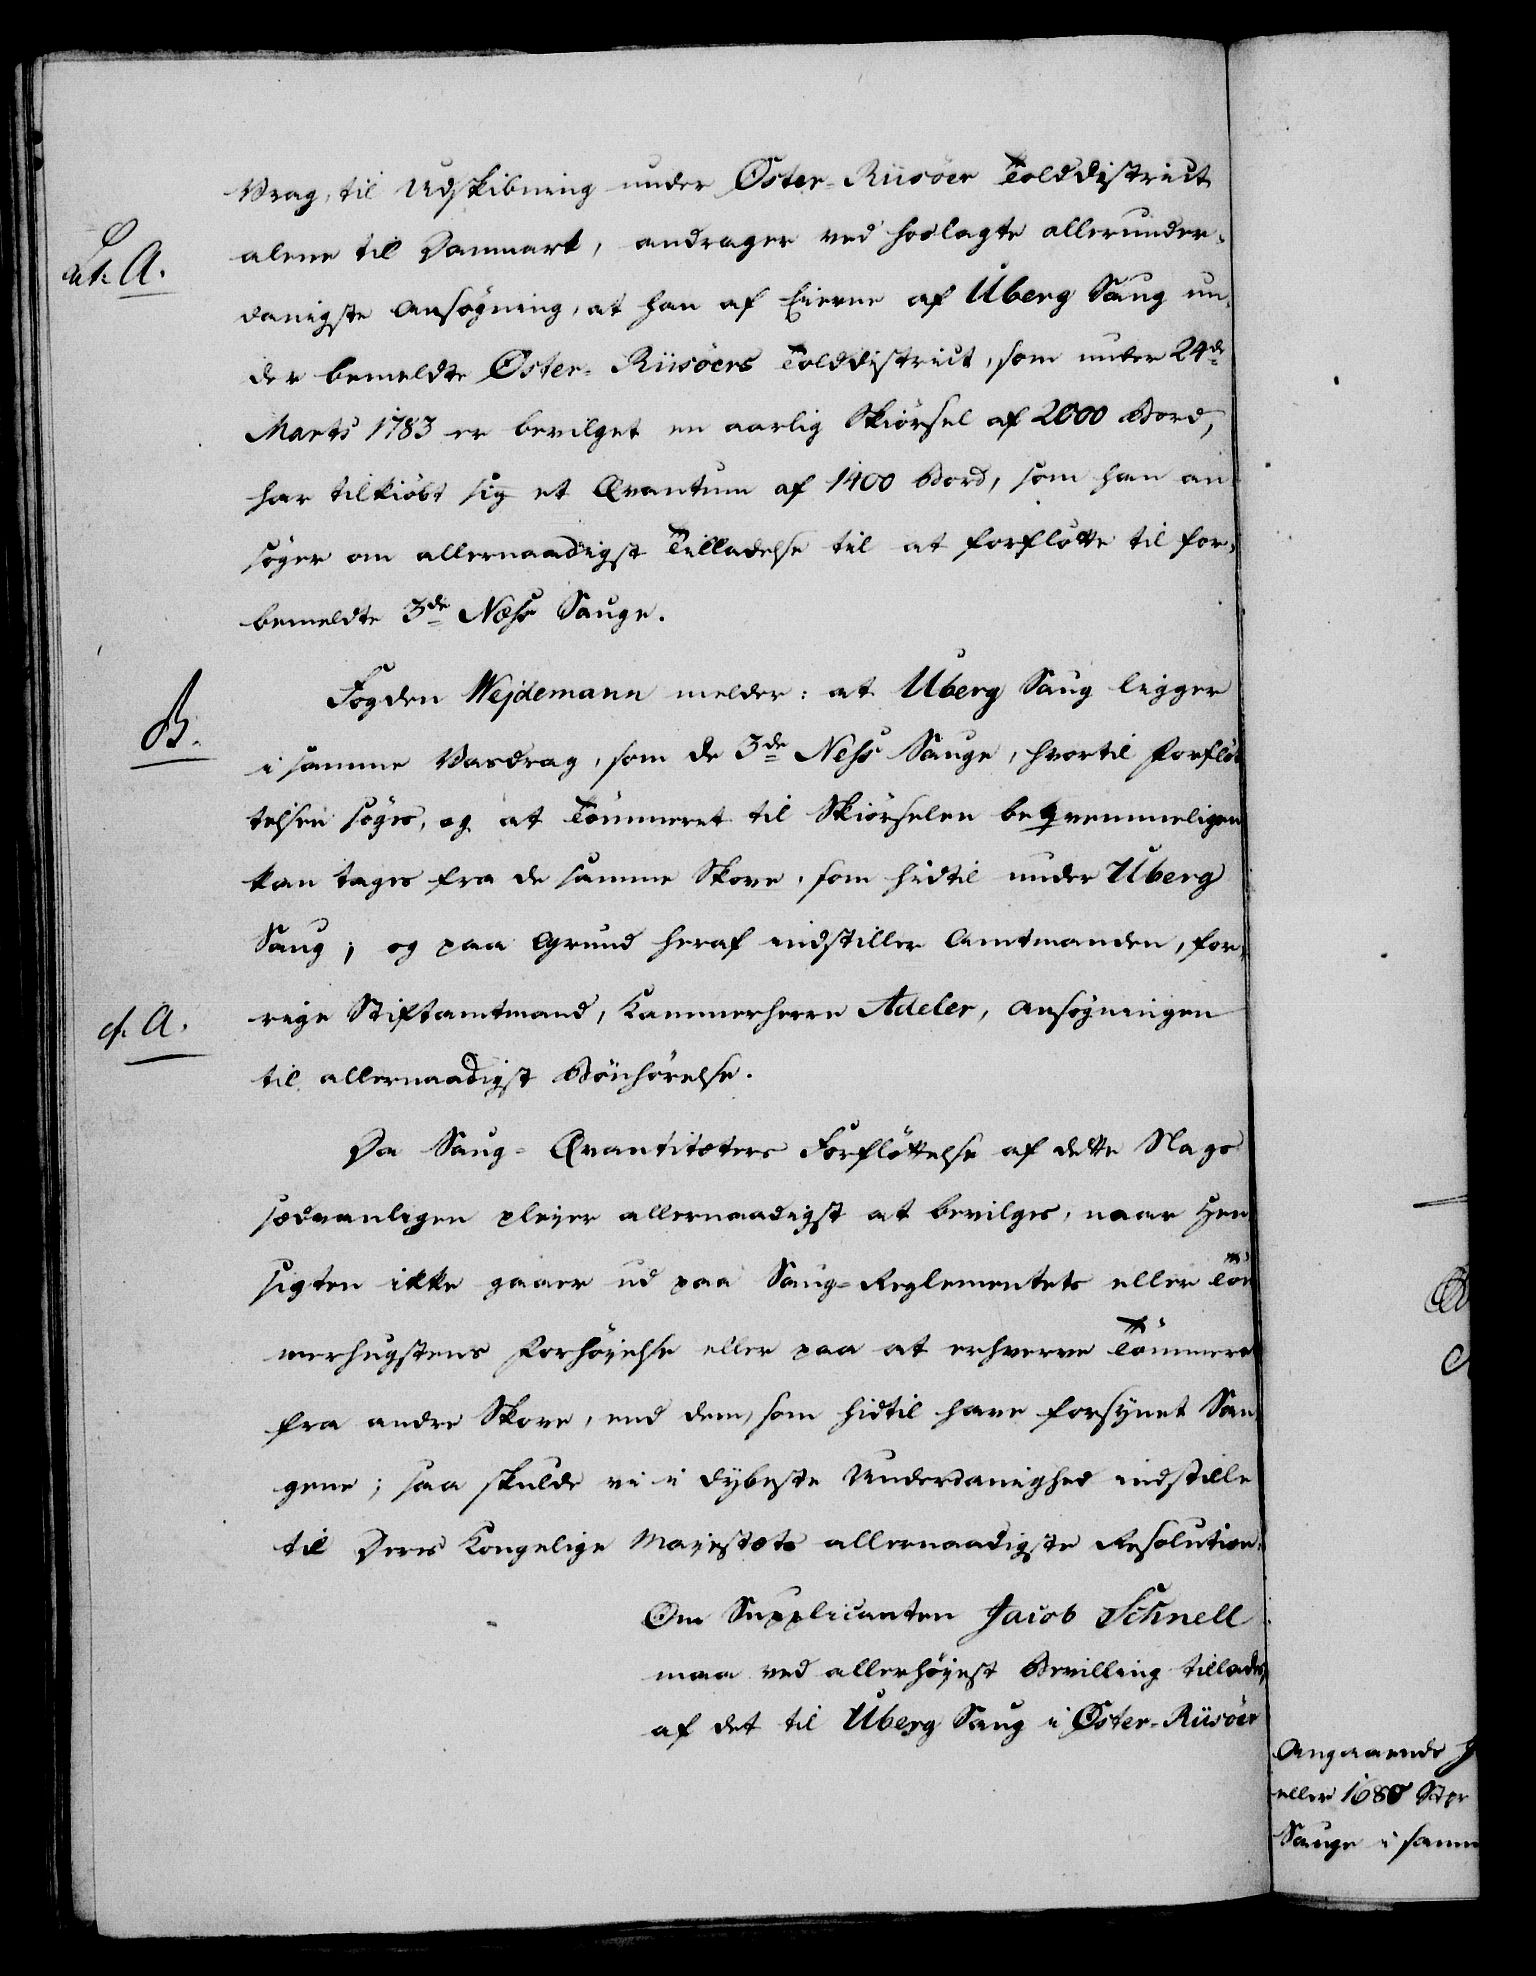 Vrag, til Udskibning under Øster-Riisöer Tolddistrict
alene til Danmark, andrager ved hoslagte allerunder-
Lit. A.
danigste Ansøgning, at han af Eierne af Uberg Saug un-
der bemeldte Øster-Riisöers Tolddistrict, som under 24de
Marts 1783 er bevilget en aarlig Skiørsel af 2000 Bord,
har tilkiøbt sig et Qvantum af 1400 Bord, som han an-
søger om allernaadigst Tilladelse til at forflötte til for-
bemeldte 3de Næss Sauge.
Fogden Wejdemann melder: at Uberg Saug ligger
B.
i samme Vasdrag, som de 3de Næss Sauge, hvortil Forflöt
telsen søges, og at Tömmeret til Skiörselen beqvemmeligen
kan tages fra de samme Skove, som hidtil under Uberg
Saug; og paa Grund heraf indstiller Amtmanden, for-
cf. A.
rige Stiftamtmand, Kammerherre Adeler, Ansøgningen
til allernaadigst Bönhörelse.
Da Saug-Qvantiteters Forflöttelse af dette Slags
sædvanligen plejer allernaadigst at bevilges, naar Hen
sigten ikke gaaer ud paa Saug-Reglementets eller Töm
merhugstens Forhöjelse eller paa at erhverve Tömmeret
fra andre Skove, end dem, som hidtil have forsynet Sau
gene; saa skulde vi i dybeste Underdanighed indstille
til Deres Kongelige Majestæts allernaadigste Resolution:
Om Supplicanten Jacob Schnell
maa ved allerhöjest Bevilling tillades,
af det til Uberg Saug i Øster-Riisöer
Angaaende
eller 1680
Sauge i samm